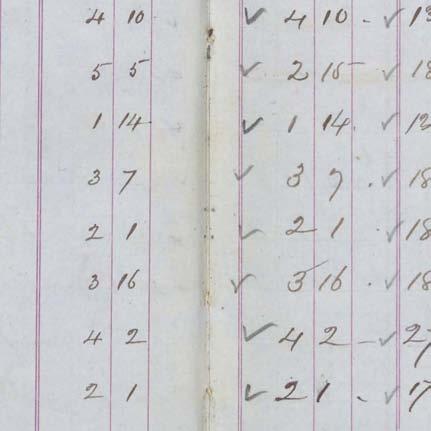 4 10 ✓ 4 10 - ✓ 13
5 5 ✓ 2 15 ✓ 18
1 14 ✓ 1 14 ✓ 12
3 7 ✓ 3 7 . ✓ 18
2 1 ✓ 2 1 ✓ 18
3 16 ✓ 3 16 . ✓ 18
4 2 ✓ 4 2 - ✓ 27
2 1 ✓ 2 1 - ✓ 17